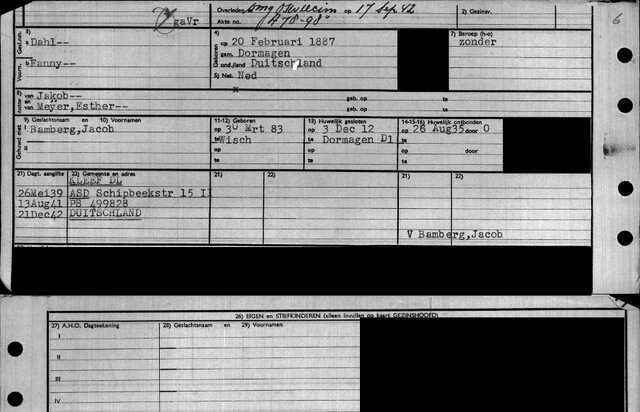 gaVr
Overleden omg Auswitz op 17 Sep 42
2) Gezinsv.
Akte no. A 78-98"
6
3)
Dahl--
4)
op 20 Februari 1887
gem. Dormagen
7) Beroep (h-o)
zonder
Fanny--
Geboren
Duitschland
5) Nat. Ned
van Jakob--
geb. op
te
en
van Meyer, Esther--
geb. op
te
9) Geslachtsnaam en 10) Voornamen
11-12) Geboren
13) Huwelijk gesloten
14-15-16) Huwelijk ontbonden
Gehuwd met
I Bamberg,Jacob
op 30 Mrt 83
op 3 Dec 12
op 26 Aug35 door O
te Wisch
te Dormagen Dl
te
II
op
op
op
door
te
te
te
21) Dagt. aangifte
22) Gemeente en adres
KLEEF DL
26Mei39 ASD Schipbeekstr 15 II
13Aug41 PB 499828
21Dec42 DUITSCHLAND
V Bamberg,Jacob
26) EIGEN en STIEFKINDEREN (alleen invullen op kaart GEZINSHOOFD)
27) A.H.O. Dagtekening
28) Geslachtsnaam en 29) Voornamen
I
II
III
IV